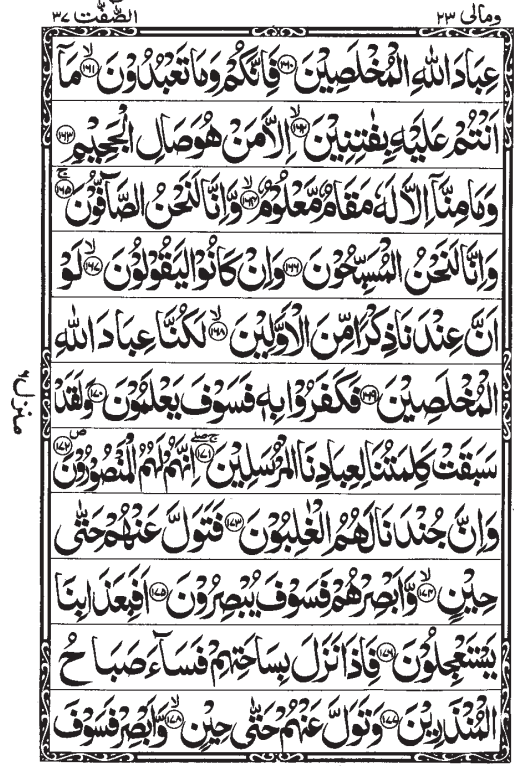 ومالی ۲۳
الصّٰٓفّٰت ۳۷
عِبَادَ اللّٰهِ الْمُخْلَصِیْنَ ﴿۱۶۰﴾ فَاِنَّكُمْ وَمَا تَعْبُدُوْنَ ﴿۱۶۱﴾ۙ مَاۤ
اَنْتُمْ عَلَیْهِ بِفٰتِنِیْنَ ﴿۱۶۲﴾ۙ اِلَّا مَنْ هُوَ صَالِ الْجَحِیْمِ ﴿۱۶۳﴾
وَمَا مِنَّاۤ اِلَّا لَهٗ مَقَامٌ مَّعْلُوْمٌ ﴿۱۶۴﴾ۙ وَّاِنَّا لَنَحْنُ الصَّآفُّوْنَ ﴿۱۶۵﴾ۚ
وَاِنَّا لَنَحْنُ الْمُسَبِّحُوْنَ ﴿۱۶۶﴾ وَاِنْ كَانُوْا لَیَقُوْلُوْنَ ﴿۱۶۷﴾ۙ لَوْ
اَنَّ عِنْدَنَا ذِكْرًا مِّنَ الْاَوَّلِیْنَ ﴿۱۶۸﴾ۙ لَكُنَّا عِبَادَ اللّٰهِ
الْمُخْلَصِیْنَ ﴿۱۶۹﴾ فَكَفَرُوْا بِهٖ فَسَوْفَ یَعْلَمُوْنَ ﴿۱۷۰﴾ وَلَقَدْ
سَبَقَتْ كَلِمَتُنَا لِعِبَادِنَا الْمُرْسَلِیْنَ ﴿۱۷۱﴾ۚۖ اِنَّهُمْ لَهُمُ الْمَنْصُوْرُوْنَ ﴿۱۷۲﴾۪
وَاِنَّ جُنْدَنَا لَهُمُ الْغٰلِبُوْنَ ﴿۱۷۳﴾ فَتَوَلَّ عَنْهُمْ حَتّٰی
حِیْنٍ ﴿۱۷۴﴾ۙ وَّاَبْصِرْهُمْ فَسَوْفَ یُبْصِرُوْنَ ﴿۱۷۵﴾ اَفَبِعَذَابِنَا
یَسْتَعْجِلُوْنَ ﴿۱۷۶﴾ فَاِذَا نَزَلَ بِسَاحَتِهِمْ فَسَآءَ صَبَاحُ
الْمُنْذَرِیْنَ ﴿۱۷۷﴾ وَتَوَلَّ عَنْهُمْ حَتّٰی حِیْنٍ ﴿۱۷۸﴾ۙ وَّاَبْصِرْ فَسَوْفَ
منزل ۶